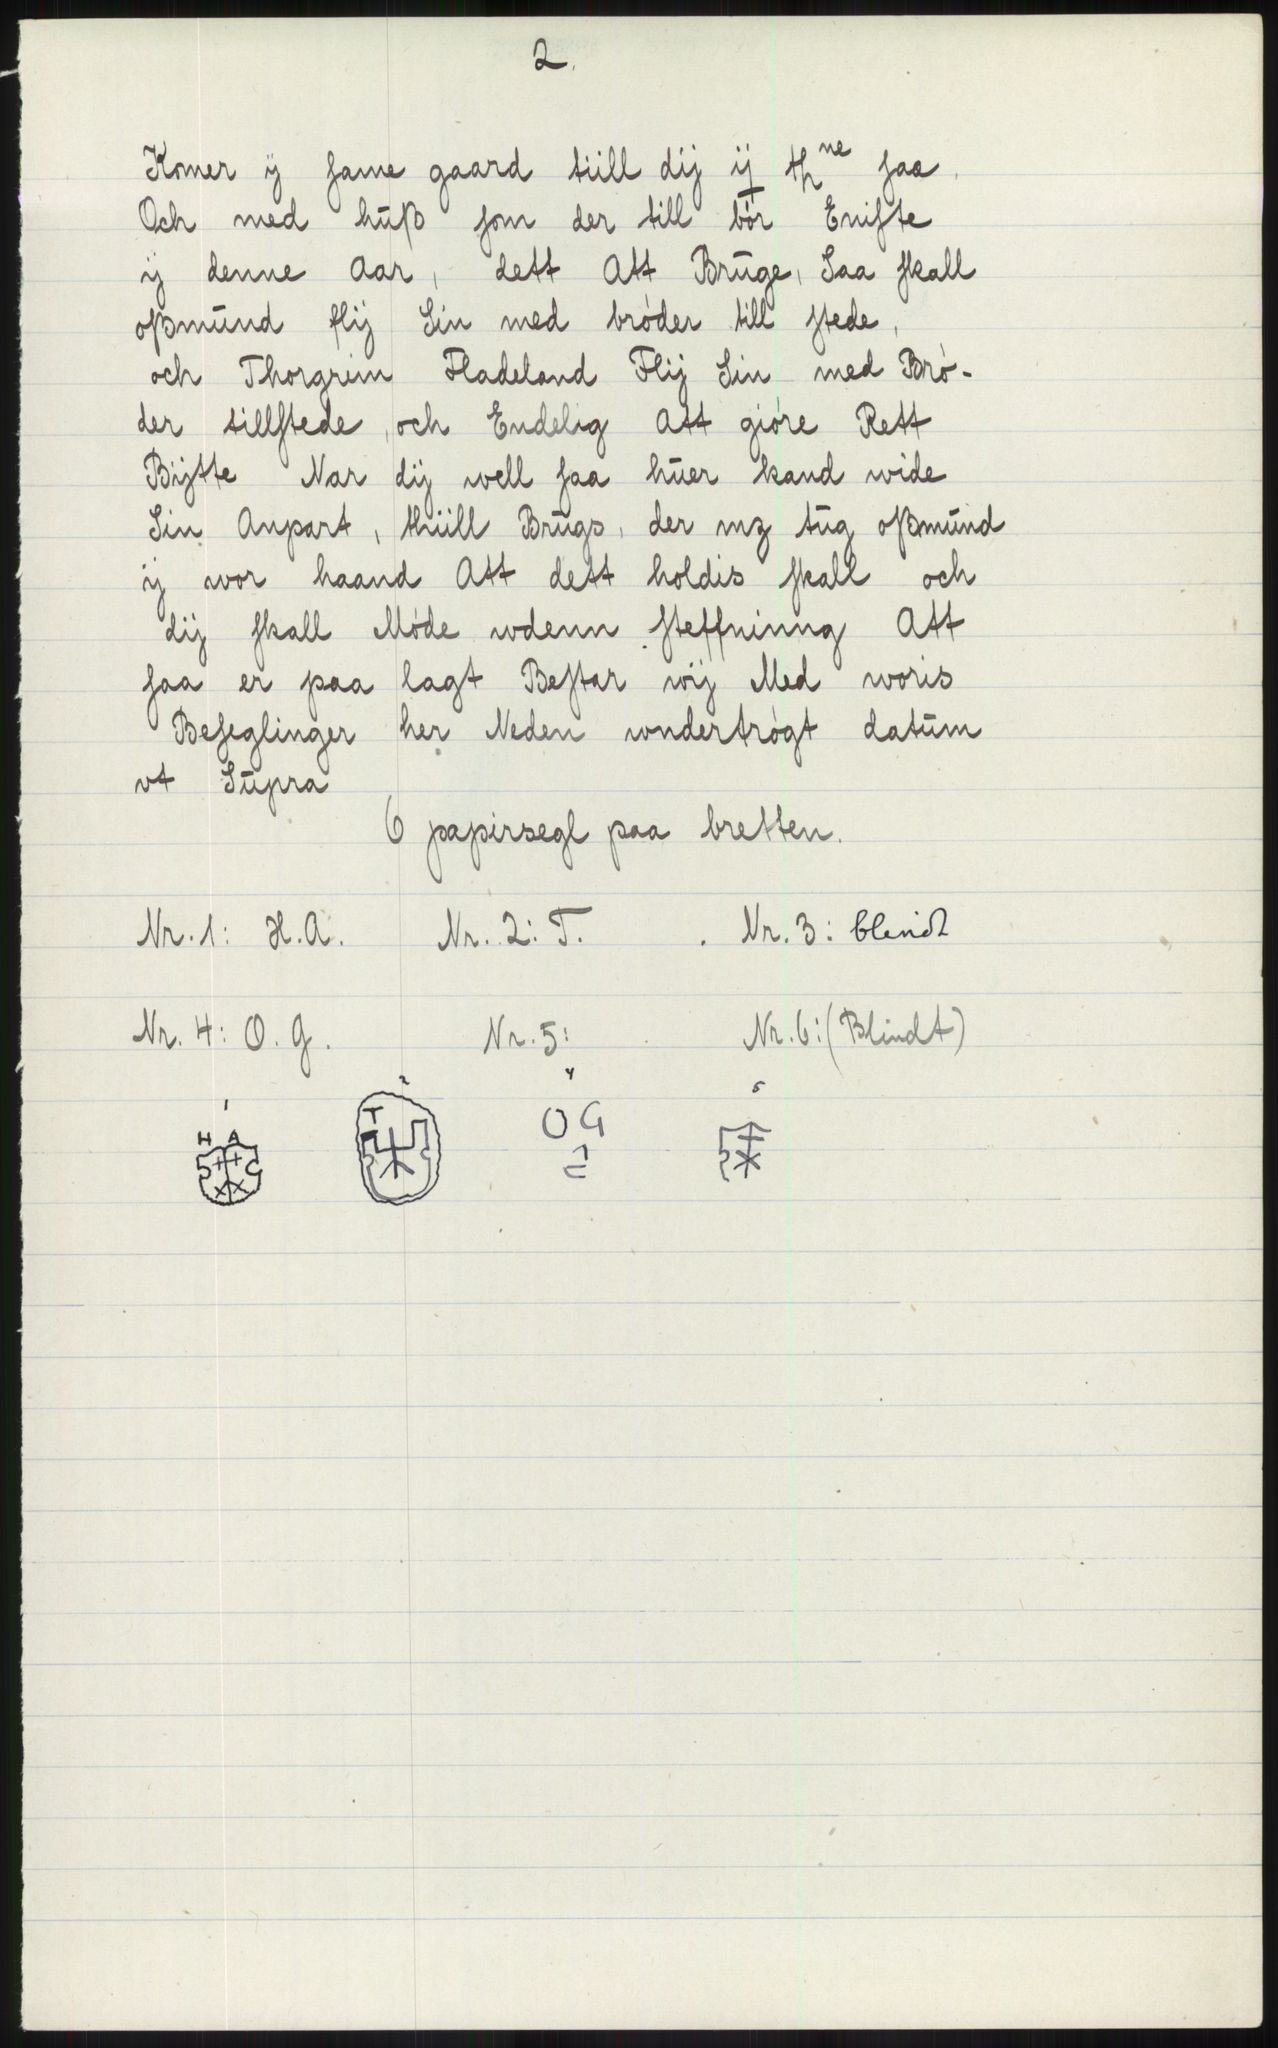 2.
Komer ÿ ſame gaard tiill dij ij thne ſaa.
Och med hŭß ſom der till bör Eniſte
ÿ denne Aar, dett Att Brŭge, Saa ſkall
oßmŭnd flij Sin med brøder till ſtede,
och Thorgrim Fladeland Flij Sin med Brø-
der tillſtede, och Endelig Att giøre Rett
Bijtte Nar dij well ſaa hŭer kand wide
Sin Anpart, thiill Brŭgs, der mz tŭg oßmŭnd
ÿ wor haand Att dett holdis ſkall och
dij ſkall Møde wdenn ſteffninng Att
ſaa er paa lagt Beſtar wij Med woris
Beſeglinger her Neden wndertrøgt datŭm
vt Sŭpra
6 papirsegl paa bretten.
Nr. 1: H.A. Nr. 2: T. Nr. 3: blindt
Nr. 4: O.G. Nr. 5: Nr. 6: (Blindt)
1 2 4 5
H A T O G